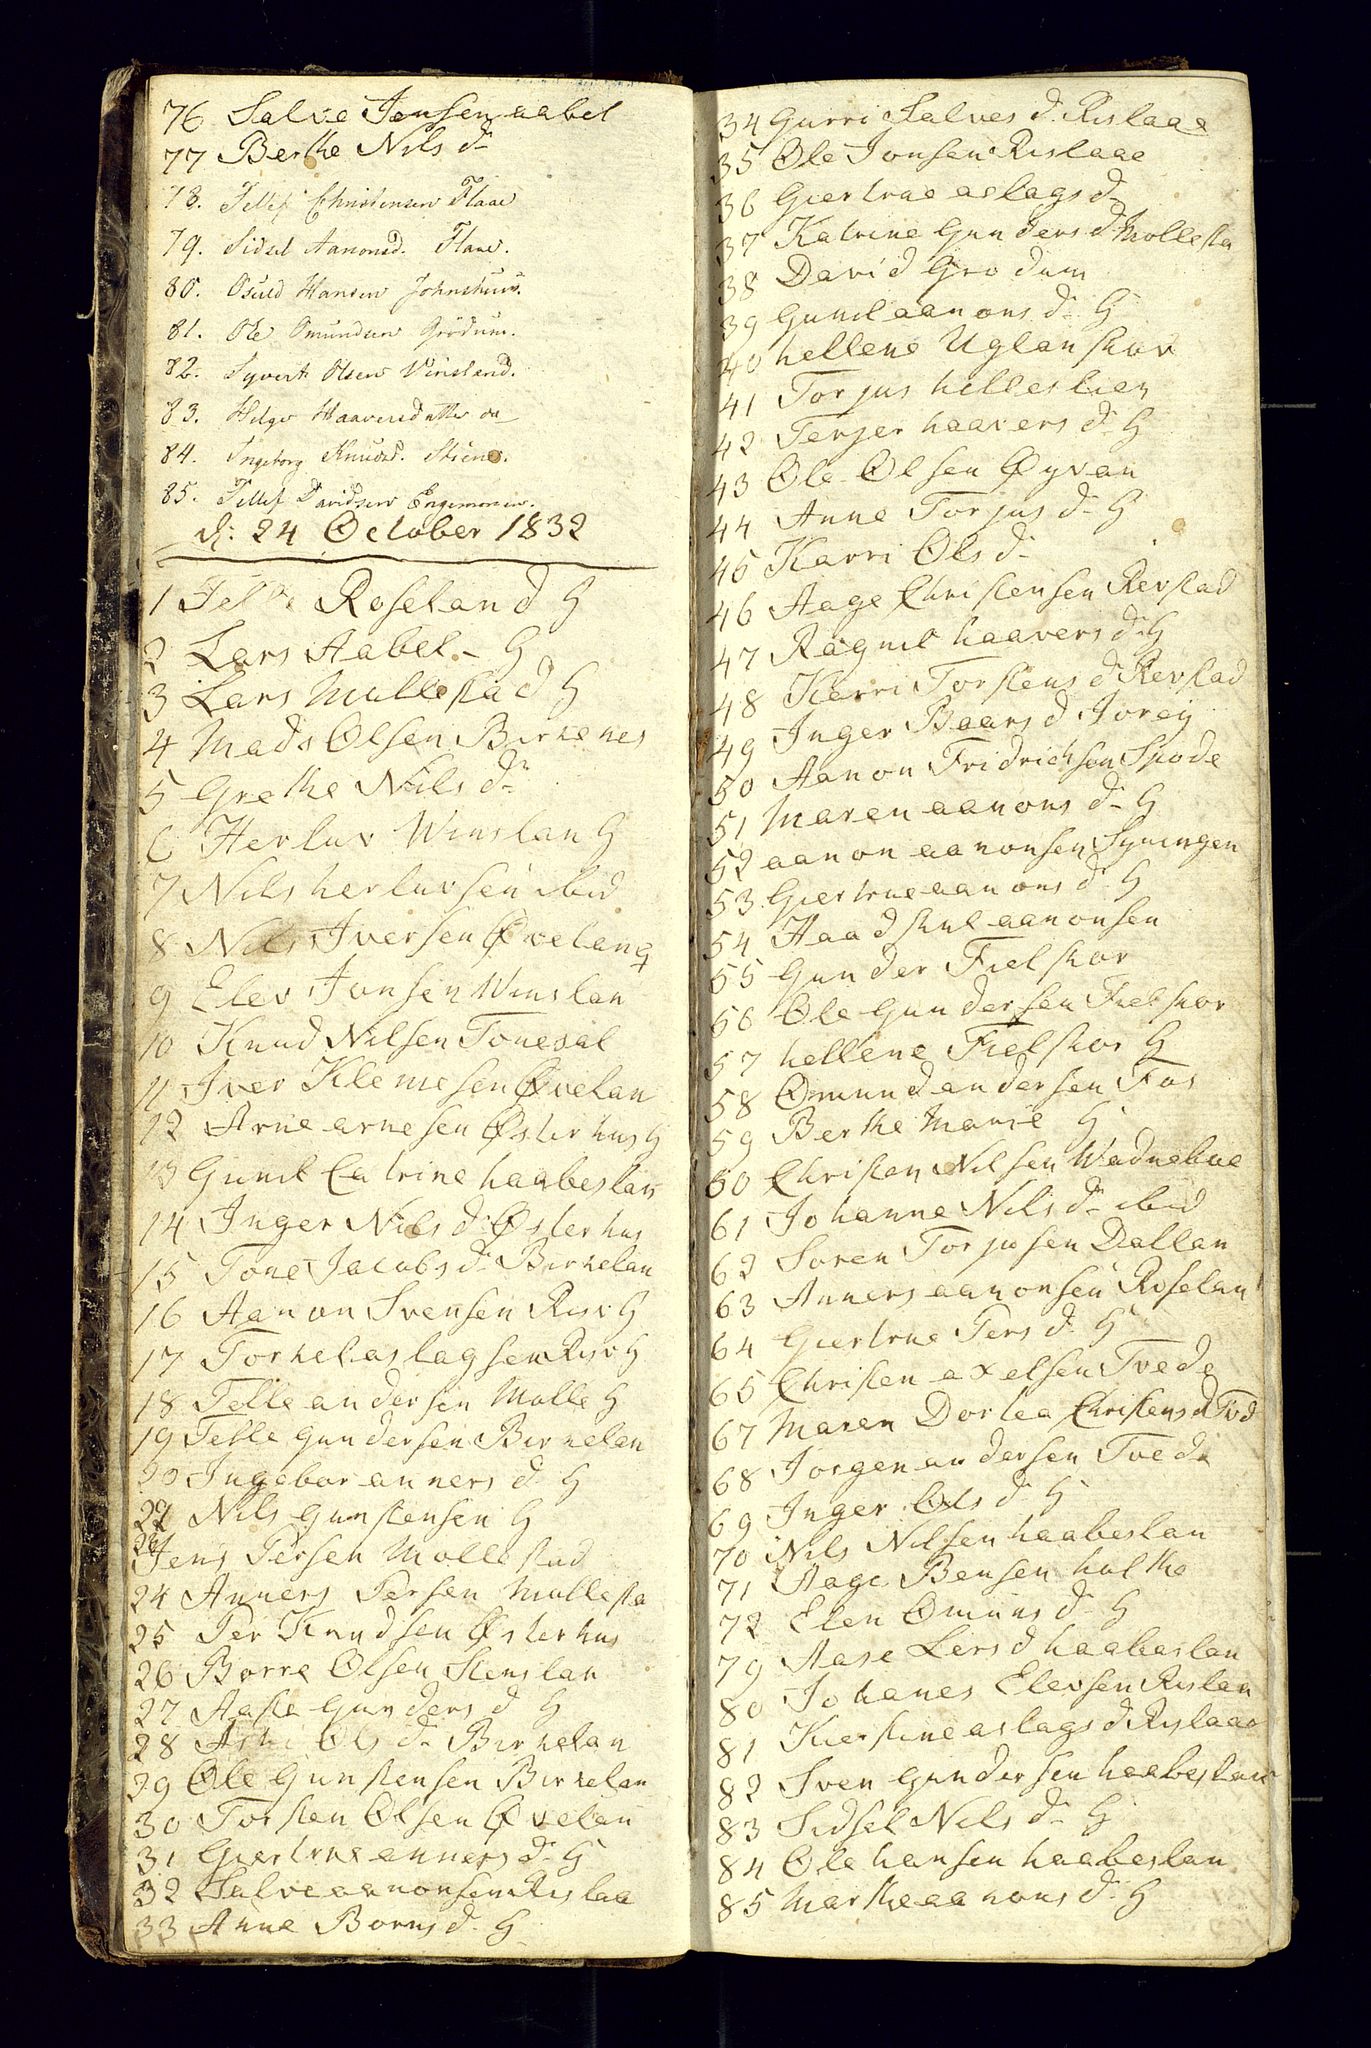 76 Salve Jensen aabel
77 Berthe Nils d-
78. Tellef Christensen Flaae
79. Sidsel Aanonsd. Flaae.
80. Osuld Hansen Johnshuus.
81. Ole Omundsen Grødum.
82. Syvert Olsen Vinsland.
83. Helge Haaversdatter
84. Ingeborg Knudsd. Stiene.
85. Tellef Davidsen Engemoen.
d: 24 October 1832
1 Telle Roseland H
2 Lars Aabel - H
3 Lars Mollestad H
4 Mads Olsen Birkenes
5 Grethe Nils d-
6 Herluv Winslan H
7 Nils herluvsen ibid
8 Nils Iversen Øvelan H
9 Elev Jonsen Winslan
10 Knud Nilsen Tonesal
11 Iver Klemesen Øvelan
12 Arne arnesen Østerhus H
13 Gunil Catrine haabeslan
14 Inger Nils d Østerhus
15 Tone Jacobs d- Birkelan
16 Aanon Svensen Risv H
17 Torkel aslagsen Risv H
18 Telle andersen Molle H
19 Telle Gundersen Birkelan
20 Ingebor anners d- H
22 Nils Gunstensen H
Jens Persen Mollestad
24 Anners Persen Mollesta
25 Per Knudsen Østerhus
26 Borre Olsen Stenslan
27 Aaste Gunders d H
28 Ols d- Birkelan
29 Ole Gunstensen Birkelan
30 Torsten Olsen Øvelan
31 Giertrue anners d- H
32 Salve aanonsen Rislaa
33 Anne Borns d- H
34 Gurri Salves d. Rislaae
35 Ole Jonsen Rislaae
36 Giertrue aslags d-
37 Katrine Gunders d Mollesta
38 David Grodum
39 Gunil aanons d- H
40 hellene Uglanskov
41 Torjus helleslien
42 Terjer haavers d- H
43 Ole Olsen Øyvan
44 Anne Torjus d- H
45 Karri Ols d-
46 Aage Christensen Revstad
47 Ragnil haavers d- H
48 Karri Torstens d Revstad
49 Inger Baars d Jorey
50 Aanon Fridrichsen Spode
51 Maren aanons d- H
52 aanon aanonsen Syningen
53 Giertrue aanons d- H
54 Haadskul aanonsen
55 Gunder Fielskor
56 Ole Gundersen Fielskor
57 hellene Fielskor H
58 Omund andersen Fos
59 Berthe Marie H
60 Christen Nilsen Wadnebue
61 Johanne Nils d- ibid
62 Soren Torjusen Dallan
63 Anners aanonsen Roselan
64 Giertrue Pers d. H
65 Christen axelsen Tvede
67 Maren Dortea Christens d Tvd
68 Jorgen andersen Tvede
69 Inger Ols d- H
70 Nils Nilsen haabeslan
71 Aage Bensen hulthe
72 Elen Omuns d- H
79 Aase Lers d haabeslan
80 Johanes Elevsen Rislaa
81 Kierstine aslags d Rislaae
82 Sven Gundersen haabeslan
83 Sidsel Nils d- H
84 Ole hansen haabeslan
85 Marthe aanons d- H